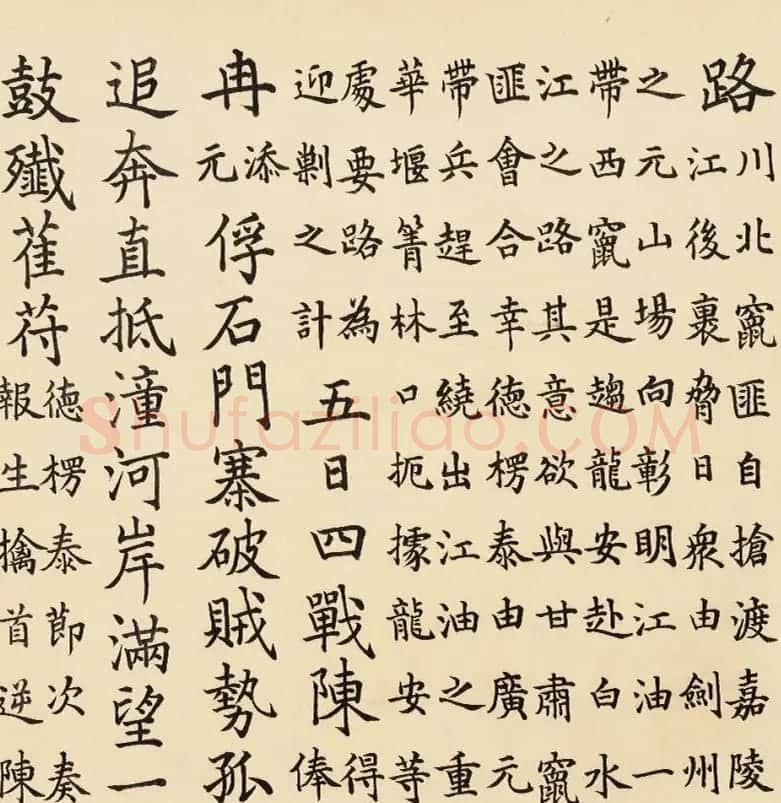 路
川北竄匪自搶渡嘉陵
江後裹脅日衆由劍州
之元山場向彰明江油一
帶西竄是趨龍安赴白水
江之路其意欲與甘肅竄
匪會合幸德楞泰由廣元
帶兵趕至繞出江油之重
華堰箐林口扼據龍安等
處要路為
迎剿之計
五日四戰陳
得
俸
冉
添
元
俘石門寨破賊勢孤
追奔直抵潼河岸滿望一
鼓殲萑苻
德楞泰節次奏
報生擒首逆陳
Shufaziliao.COM